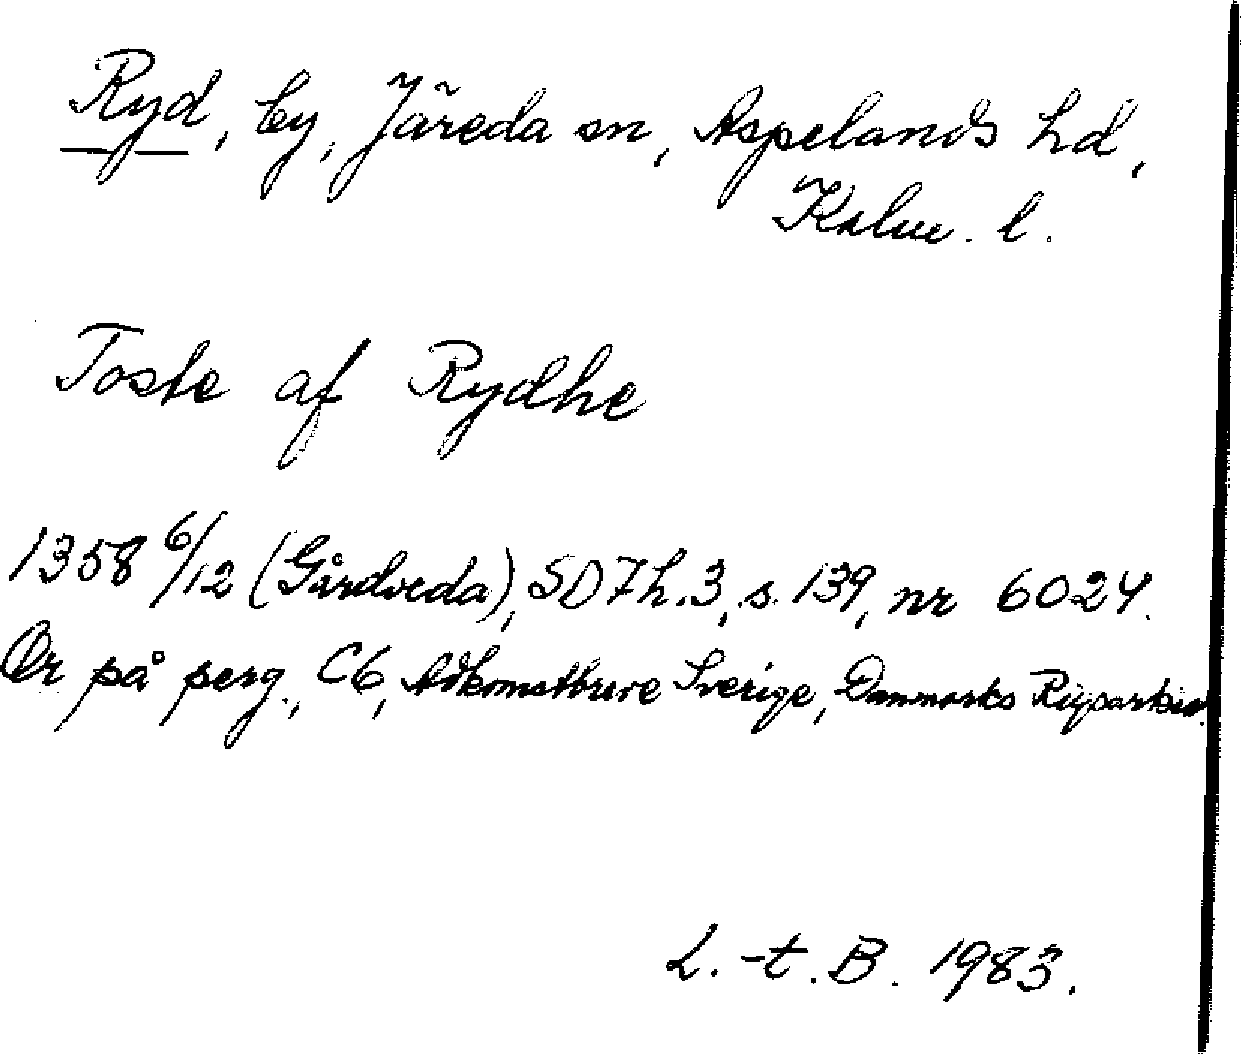 Ryd, by, Järeda sn, Aspelands hd,
Kalm. l.
Toste af Rydhe
1358 6/12 (Gårdveda), SD 7 h. 3, s. 139, nr 6024.
Or på perg., C6, Adkomstbreve Sverige, Danmarks Rigsarkiv.
L.-t. B. 1983.